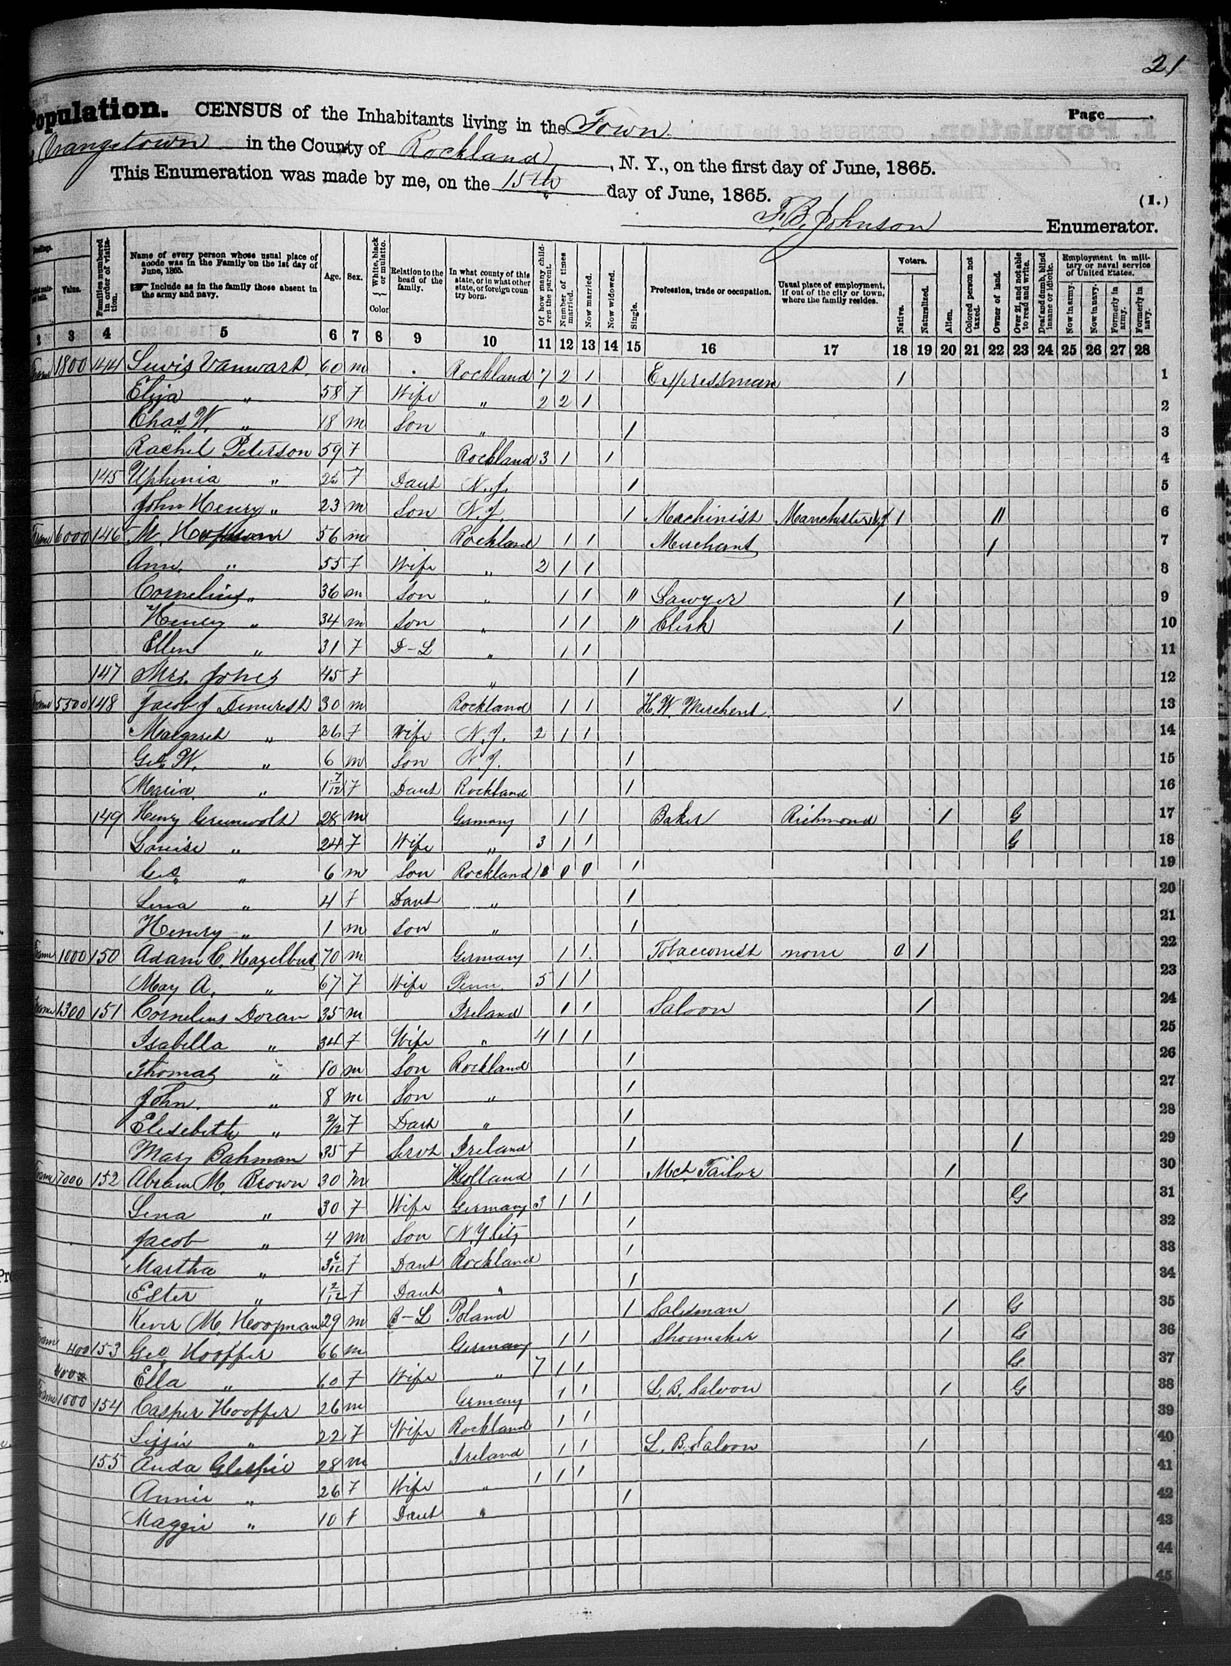 21
Population. CENSUS of the Inhabitants living in the Town Page
Orangetown in the County of Rockland, N. Y., on the first day of June, 1865.
This Enumeration was made by me, on the 15th day of June, 1865.
(1.)
F. B. Johnson Enumerator.
Value. Families numbered in order of visitation. Name of every person whose usual place of abode was in the Family on the 1st day of June, 1865. Include as in the family those absent in the army and navy. Age. Sex. Color { White, black or mulatto. Relation to the head of the family. In what county of this state, or in what other state, or foreign country born. Of how many children the parent. Number of times married. Now married. Now widowed. Single. Profession, trade or occupation. Usual place of employment, if out of the city or town, where the family resides. Voters. Native. Naturalized. Alien. Colored person not taxed. Owner of land. Over 21, and not able to read and write. Deaf and dumb, blind insane or idiotic. Employment in military or naval service of United States. Now in army. Now in navy. Formerly in army. Formerly in navy.
2 3 4 5 6 7 8 9 10 11 12 13 14 15 16 17 18 19 20 21 22 23 24 25 26 27 28
Frame 1800 144 Lewis Vanward 60 m Rockland 7 2 1 Expressman 1 1
Eliza " 58 f Wife " 2 2 1 2
Chas W. " 18 m Son " 1 3
Rachel Peterson 59 f Rockland 3 1 1 4
145 Uphenia " 25 f Daut N.J. 1 5
John Henry " 23 m Son N.J. 1 Machinist Manchester 1 11 6
Frame 6000 146 M. 56 m Rockland 1 1 Merchant 1 7
Ann " 55 f Wife " 2 1 1 8
Cornelius " 36 m Son " 1 1 11 Sawyer 1 9
Henry " 34 m Son " 1 1 11 Clerk 1 10
Ellen " 31 f D-L " 1 1 11
147 Mrs. Jones 45 f " 1 12
Frame 5500 148 Jacob J Demarest 30 m Rockland 1 1 H.W. Merchent 1 13
Margaret " 26 f Wife N.J. 2 1 1 14
Geo W. " 6 m Son N.J. 1 15
Maria " 1 7/12 f Daut Rockland 1 16
149 Henry Grunwolt 28 m Germany 1 1 Baker Richmond 1 G 17
Louise " 24 f Wife " 3 1 1 G 18
Geo " 6 m Son Rockland 0 0 0 1 19
Lena " 4 f Daut " 1 20
Henry " 1 m Son " 1 21
Frame 1000 150 Adam C. Hazelbut 70 m Germany 1 1 Tobacconist none 0 1 22
May A. " 67 f Wife Penn. 5 1 1 23
Frame 1300 151 Cornelius Doran 35 m Ireland 1 1 Saloon 1 24
Isabella " 34 f Wife " 4 1 1 25
Thomas " 10 m Son Rockland 1 26
John " 8 m Son " 1 27
Elisebeth " 2/12 f Daut " 1 28
Mary Bahman 35 f Servt Ireland 1 1 29
Frame 7000 152 Abram M. Brown 30 m Holland 1 1 Mct Tailor 1 30
Lena " 30 f Wife Germany 3 1 1 G 31
Jacob " 4 m Son N.Y. City 1 32
Martha " 3 6/12 f Daut Rockland 1 33
Ester " 1 2/12 f Daut " 1 34
M. Koopman 29 m B-L Poland 1 Salesman 1 G 35
Frame 400 153 Geo Hooffer 66 m Germany 1 1 Shoemaker 1 G 36
400 Ella " 60 f Wife " 7 1 1 G 37
Frame 1000 154 Casper Hooffer 26 m Germany 1 1 L. B. Saloon 1 G 38
Lizzie " 22 f Wife Rockland 1 1 39
155 Anda Glespie 28 m Ireland 1 1 L. B. Saloon 1 40
Annie " 26 f Wife " 1 1 1 41
Maggie " 10 f Daut " 1 42
43
44
45